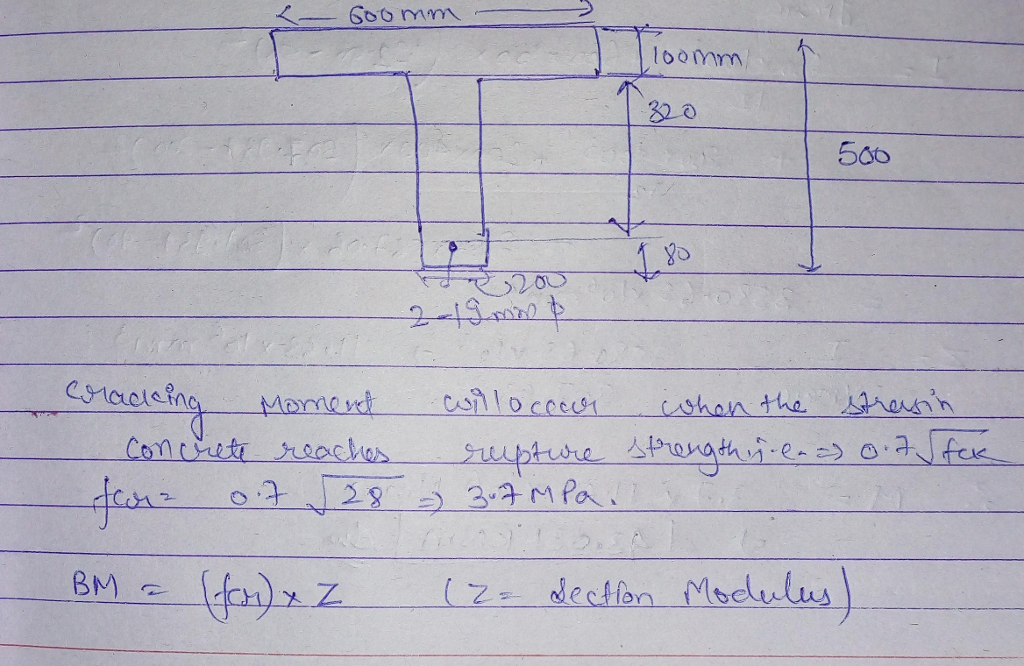 600mm
100mm
320
500
80
200
2-19mm ϕ
Cracking Moment will occur when the stress in
concrete reaches rupture strength i.e. => 0.7 √fck
fcr = 0.7 √28 => 3.7 MPa.
BM = (fcr) x Z (Z = Section Modulus)